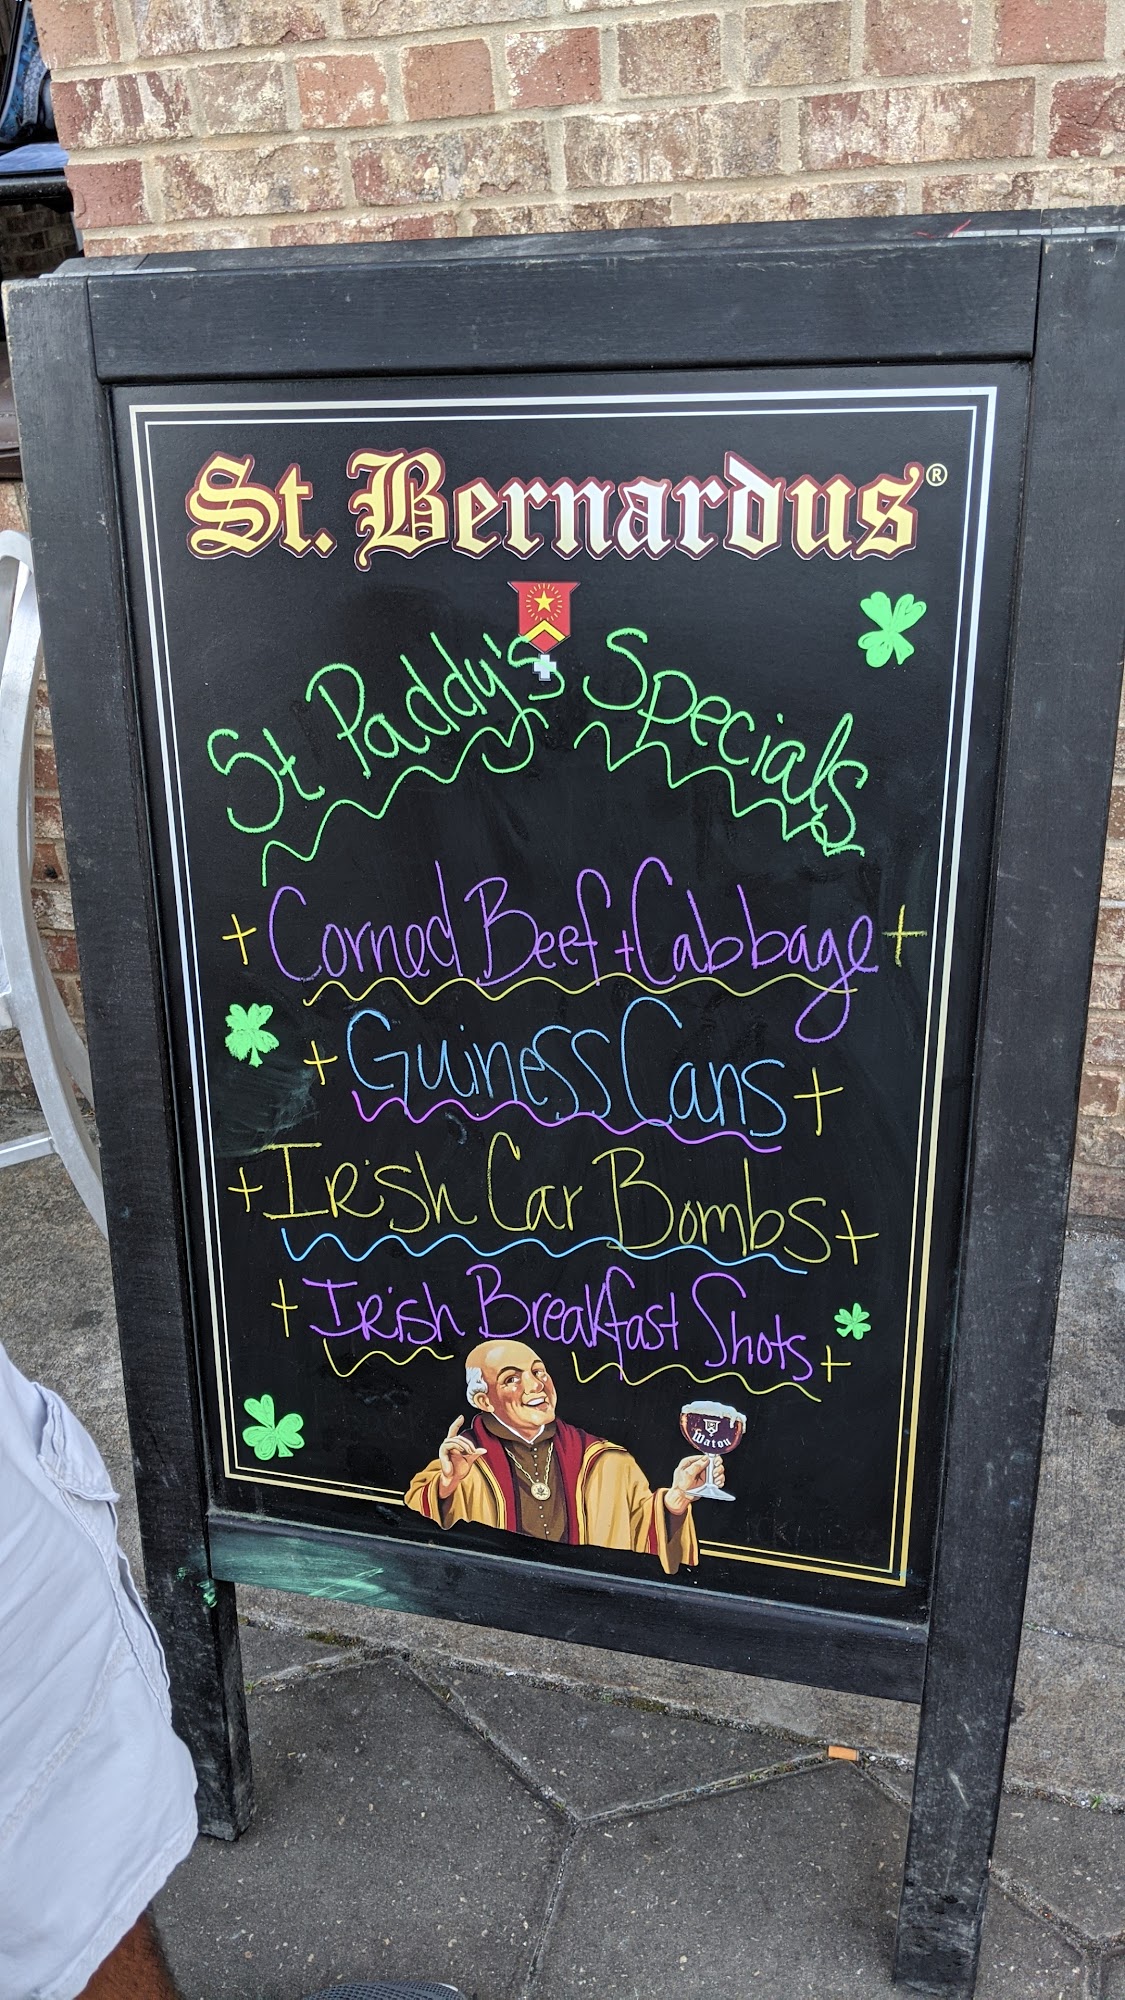 St. Bernardus®
St Paddy's Specials
+ Corned Beef + Cabbage +
+ Guiness Cans +
+ Irish Car Bombs +
+ Irish Breakfast Shots +
Watou